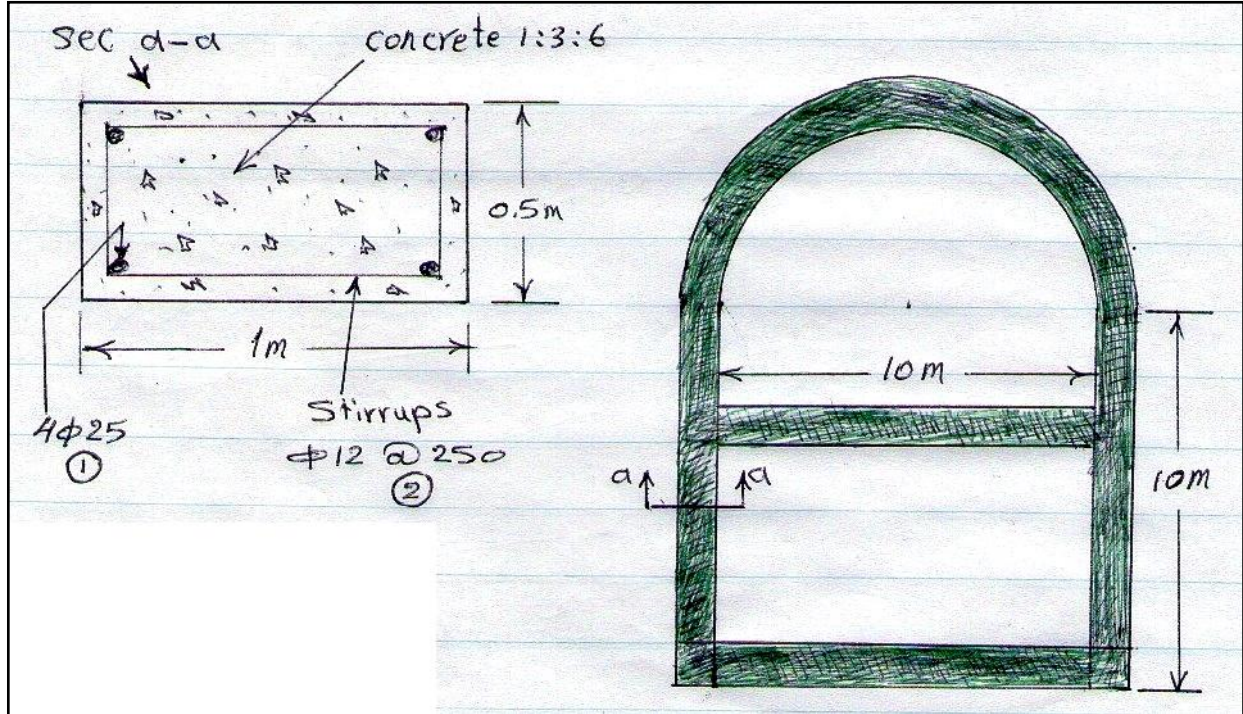 sec a-a
concrete 1:3:6
0.5m
1m
4ϕ25
①
Stirrups
ϕ12 @ 250
②
10m
a a
10m